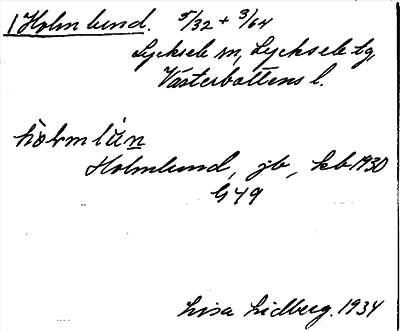 1 Holmlund. 5/32 + 3/64
Lycksele sn, Lycksele lg,
Västerbottens l.
hòlmlún
Holmlund, jb, kb 1930
G 49
Lisa Lidberg. 1934